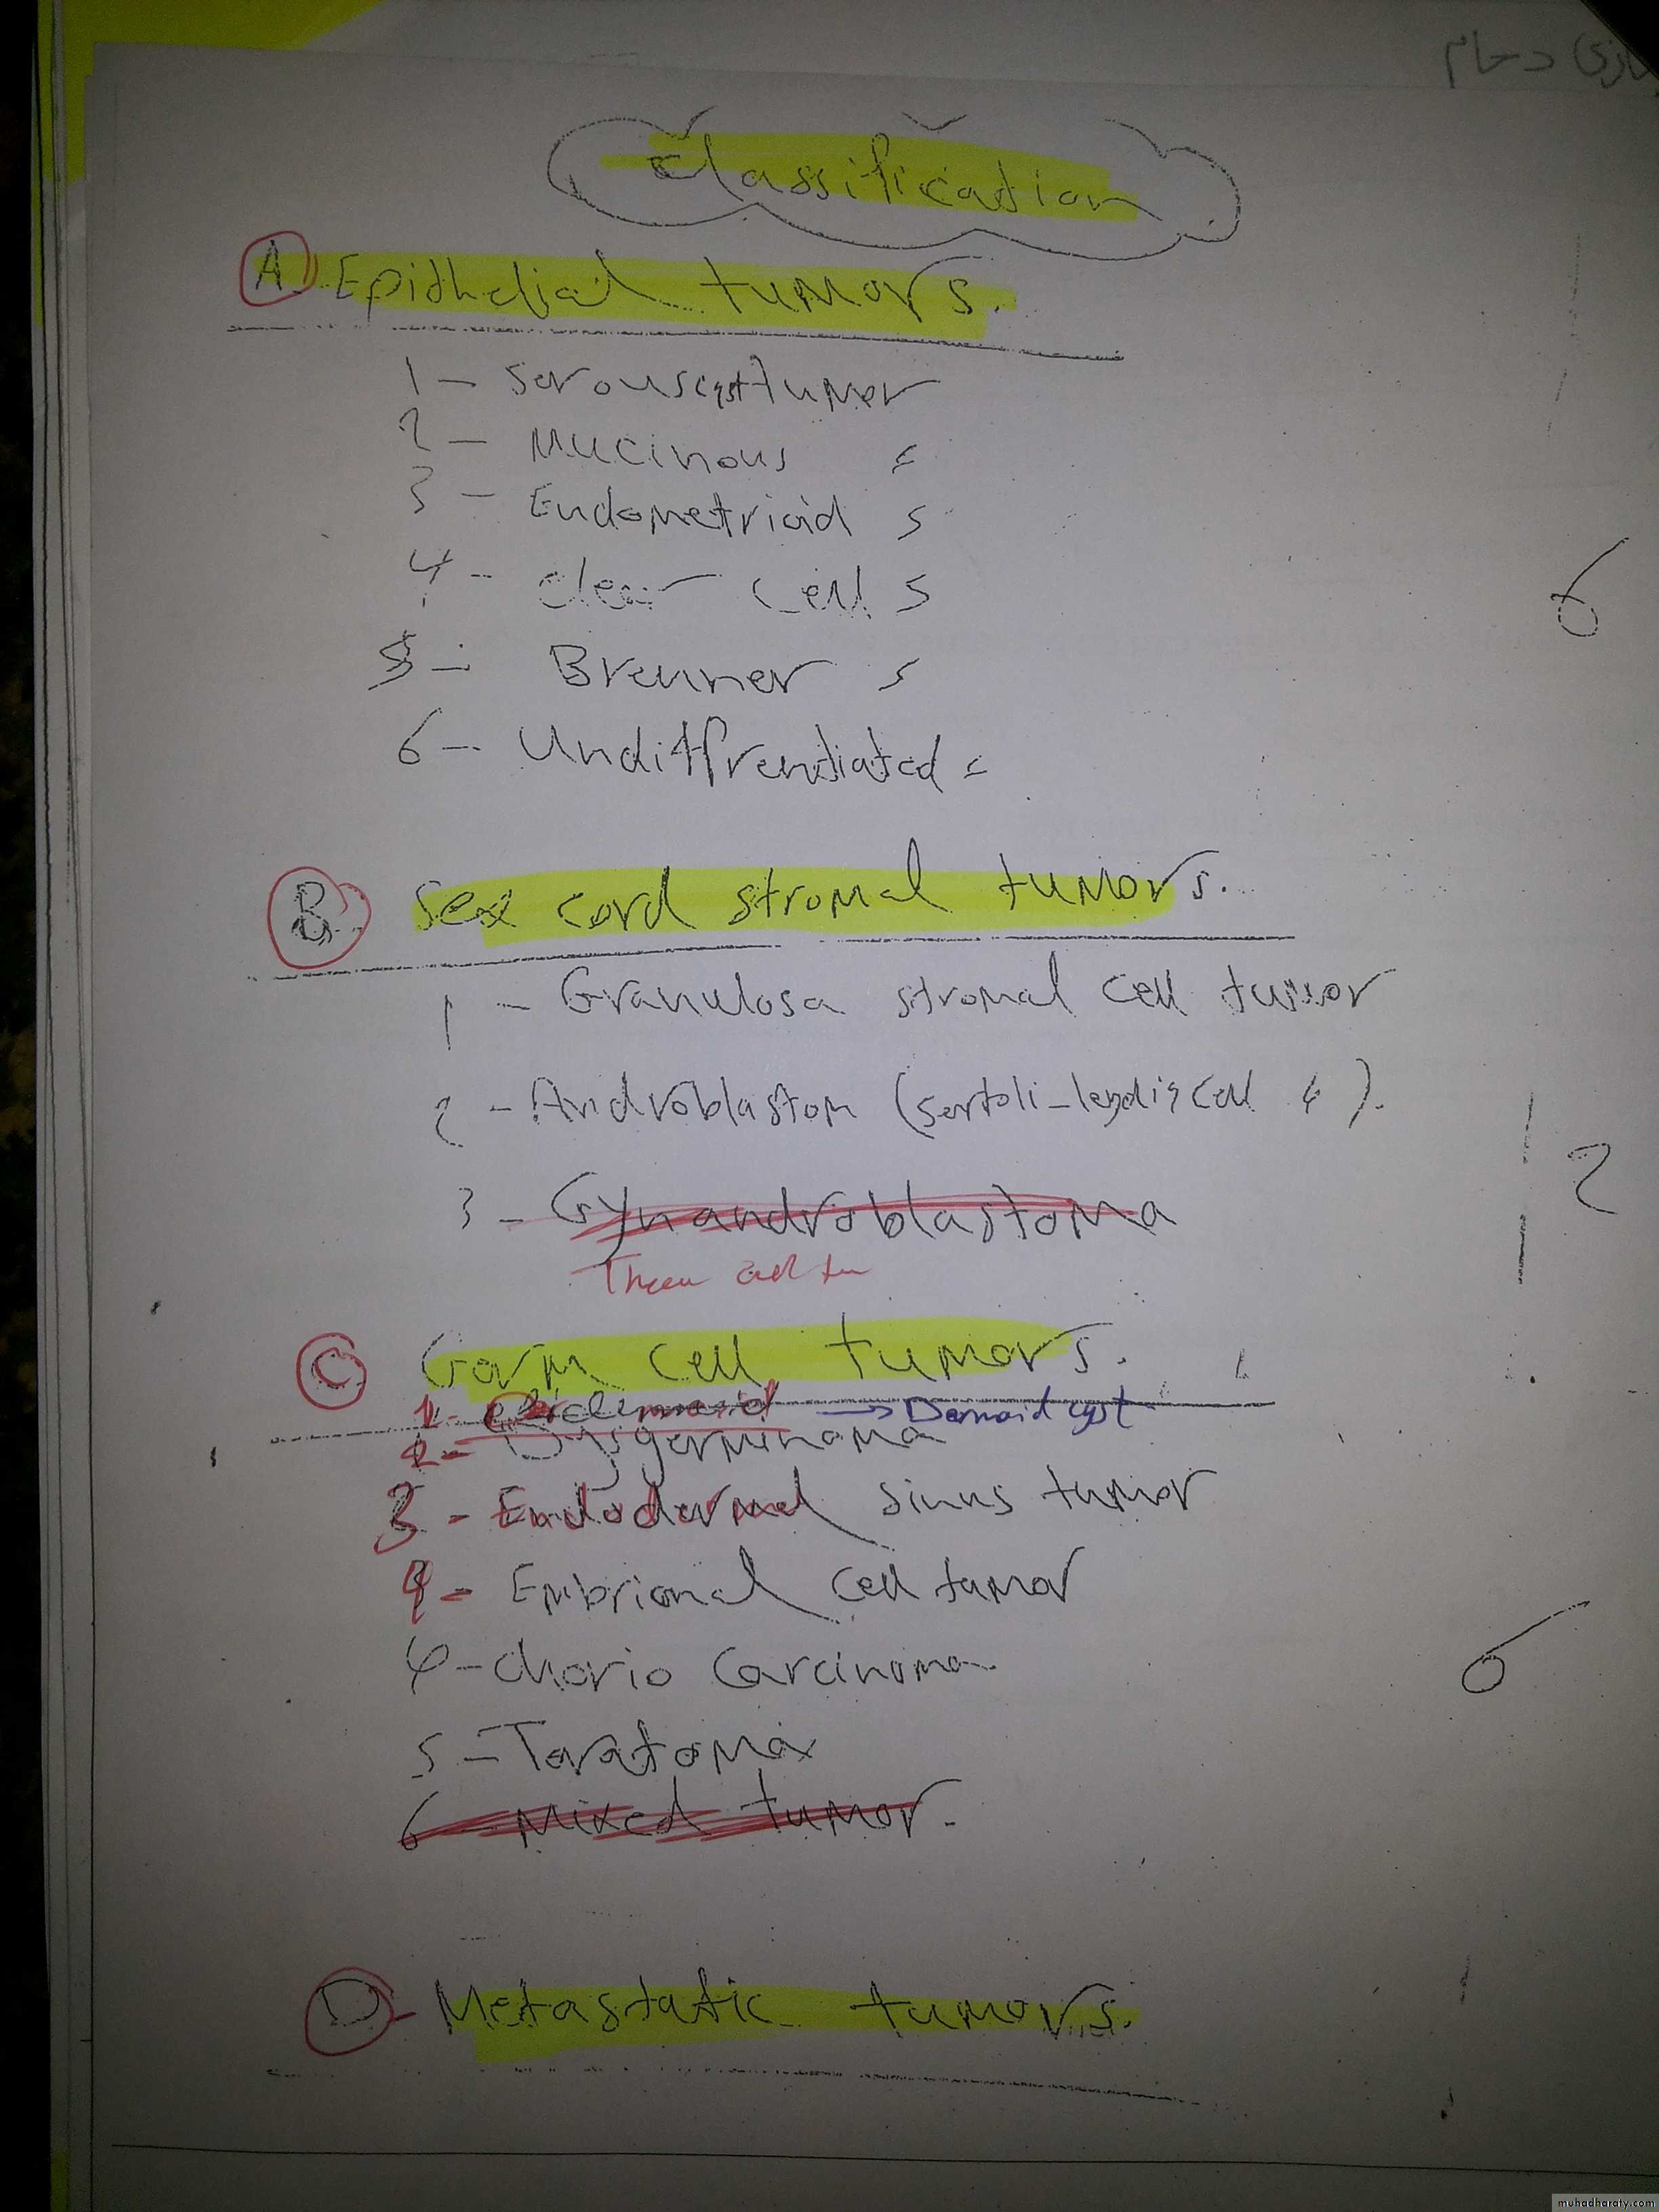 دحام
Classification
A Epithelial tumors.
1 - Serous cyst tumor
2 - Mucinous "
3 - Endometrioid "
4 - clear cell "
5 - Brenner "
6 - Undiffrentiated "
6
B Sex cord stromal tumors.
1 - Granulosa stromal cell tumor
2 - Androblastom (sertoli-leydig cell " ).
2
3 - Gynandroblastoma
C Germ cell tumors.
1- → Dermoid cyst
2- Dysgerminoma
3 - Endodermal sinus tumor
4 - Embrional cell tumor
4 - chorio Carcinoma
6
5 - Teratoma
6 - Mixed tumor.
D - Metastatic tumors.
muhadharaty.com